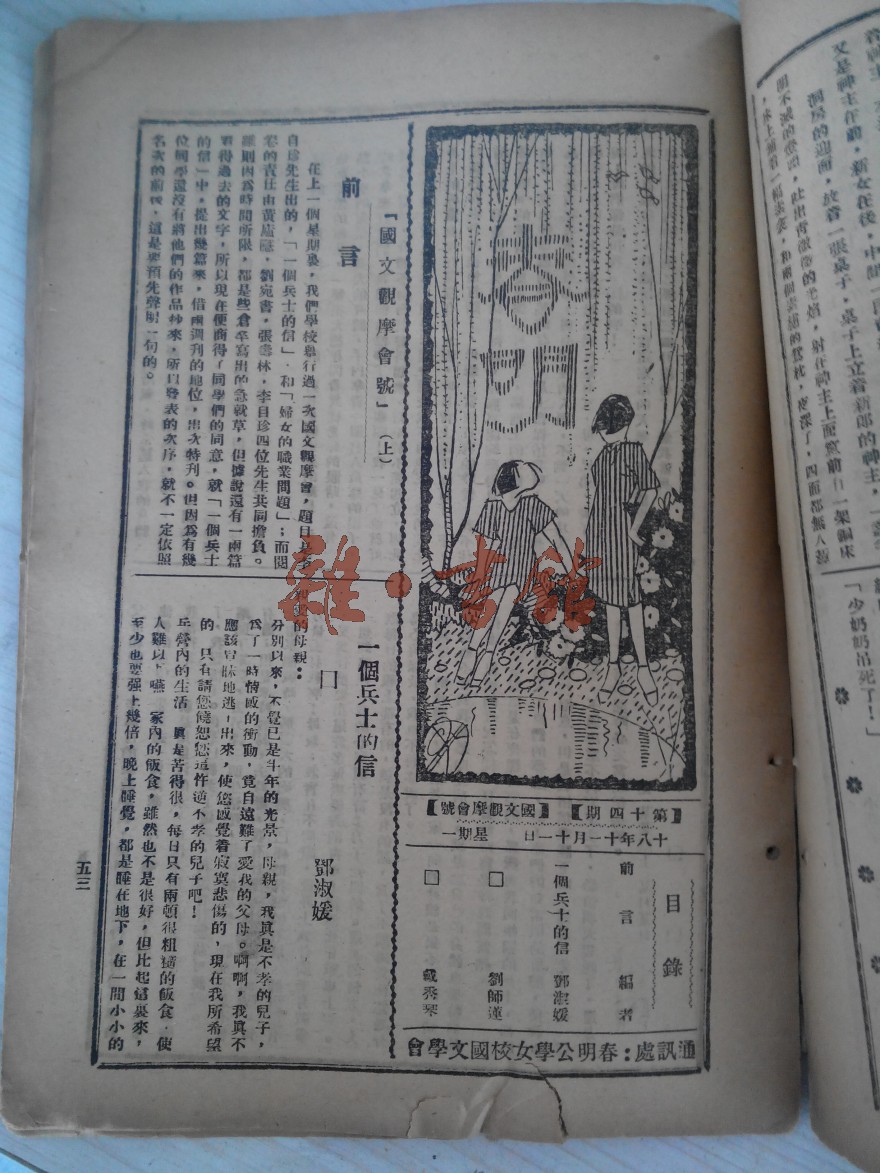 又是神主在前，新女在後，中間
洞房的迎面，放着一張桌子，桌子上立着新郎的神主，一盞
明不滅的燈頭，吐出青微微的光焰，射在神主上面
夜深了，四面都無人
「少奶奶吊死了！」
【第十四期】【國文觀摩會號】
十八年十一月十一日 星期一
目錄
前言 編者
一個兵士的信 鄧淑媛
□ 劉師蓮
□ 戴秀琴
通訊處：春明公學女校國文學會
「國文觀摩會號」（上）
前言
在上一個星期裏，我們學校舉行過一次國文觀摩會，題目是
自珍先生出的，「一個兵士的信」和「婦女的職業問題」；而閱
卷的責任由黃，劉宛書，張壽林，李自珍四位先生共同擔負。
雖則因為時間所限，都是些倉卒寫出的急就草，但據說還有一兩篇
看得過去的文字，所以現在便商得了同學們的同意，就「一個兵士
的信」中，提出幾篇來，借兩週刊的地位，出次特刊。但因為有幾
位同學還沒有將他們的作品抄來，所以發表的次序，就不一定依照
名次的前後，這是要預先聲明一句的。
一個兵士的信
□ 鄧淑媛
親愛的母親：
分別以來，不覺已是半年的光景，母親，我真是不孝的兒子，
為了一時情感的衝動，竟自遠離了愛我的父母。啊啊，我真不
應該冒昧地逃出來，使您感覺着寂寞悲傷的，現在我所希望
的，只有請您饒恕您這忤逆不孝的兒子吧！
兵營內的生活，真是苦得很，每日只有兩頓很粗糙的飯食，使
人難以下嚥，家內的飯食，雖然也不是很好，但比起這裏來，
至少也要强上幾倍，晚上睡覺，都是睡在地下，在一間小小的
五三
雜·書館